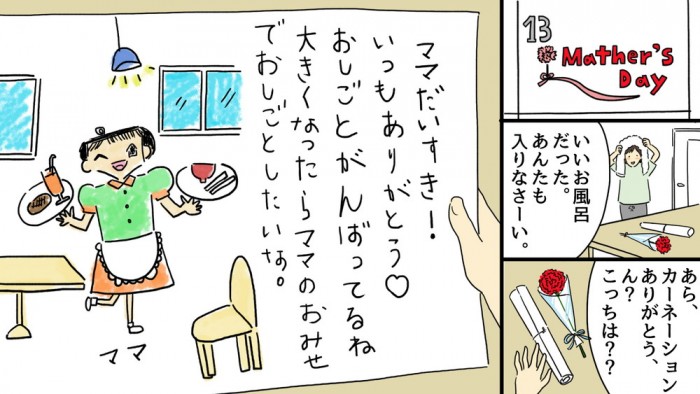 13
Mather's
Day
いいお風呂
だった。
あんたも
入りなさーい。
あら、
カーネーション
ありがとう、
ん?
こっちは??
ママだいすき!
いつもありがとう♡
おしごとがんばってるね
大きくなったらママのおみせ
でおしごとしたいな。
ママ